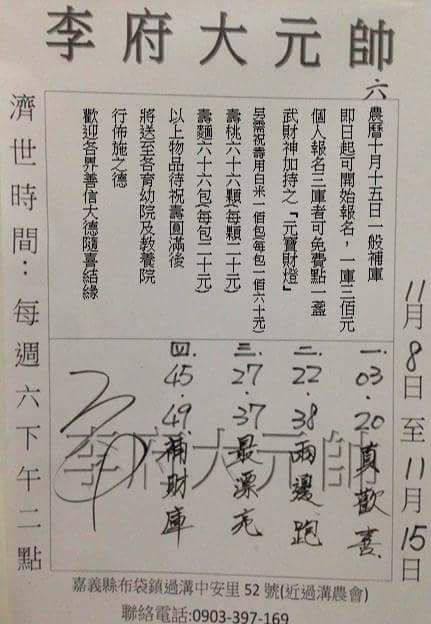 李府大元帥
六
農曆十月十五日一般補庫
即日起可開始報名，一庫三佰元
個人報名三庫者可免費點一盞
武財神加持之「元寶財燈」
另需祝壽用白米一佰包(每包一佰六十元)
壽桃六十六顆(每顆二十元)
壽麵六十六包(每包二十元)
以上物品待祝壽圓滿後
將送至各育幼院及教養院
行佈施之德
歡迎各界善信大德隨喜結緣
11月8日至11月15日
一.03.20真歡喜
二.22.38兩邊跑
三.27.37最漂亮
四.45.49.補財庫
李府大元帥
濟世時間：每週六下午二點
嘉義縣布袋鎮過溝中安里52號(近過溝農會)
聯絡電話:0903-397-169